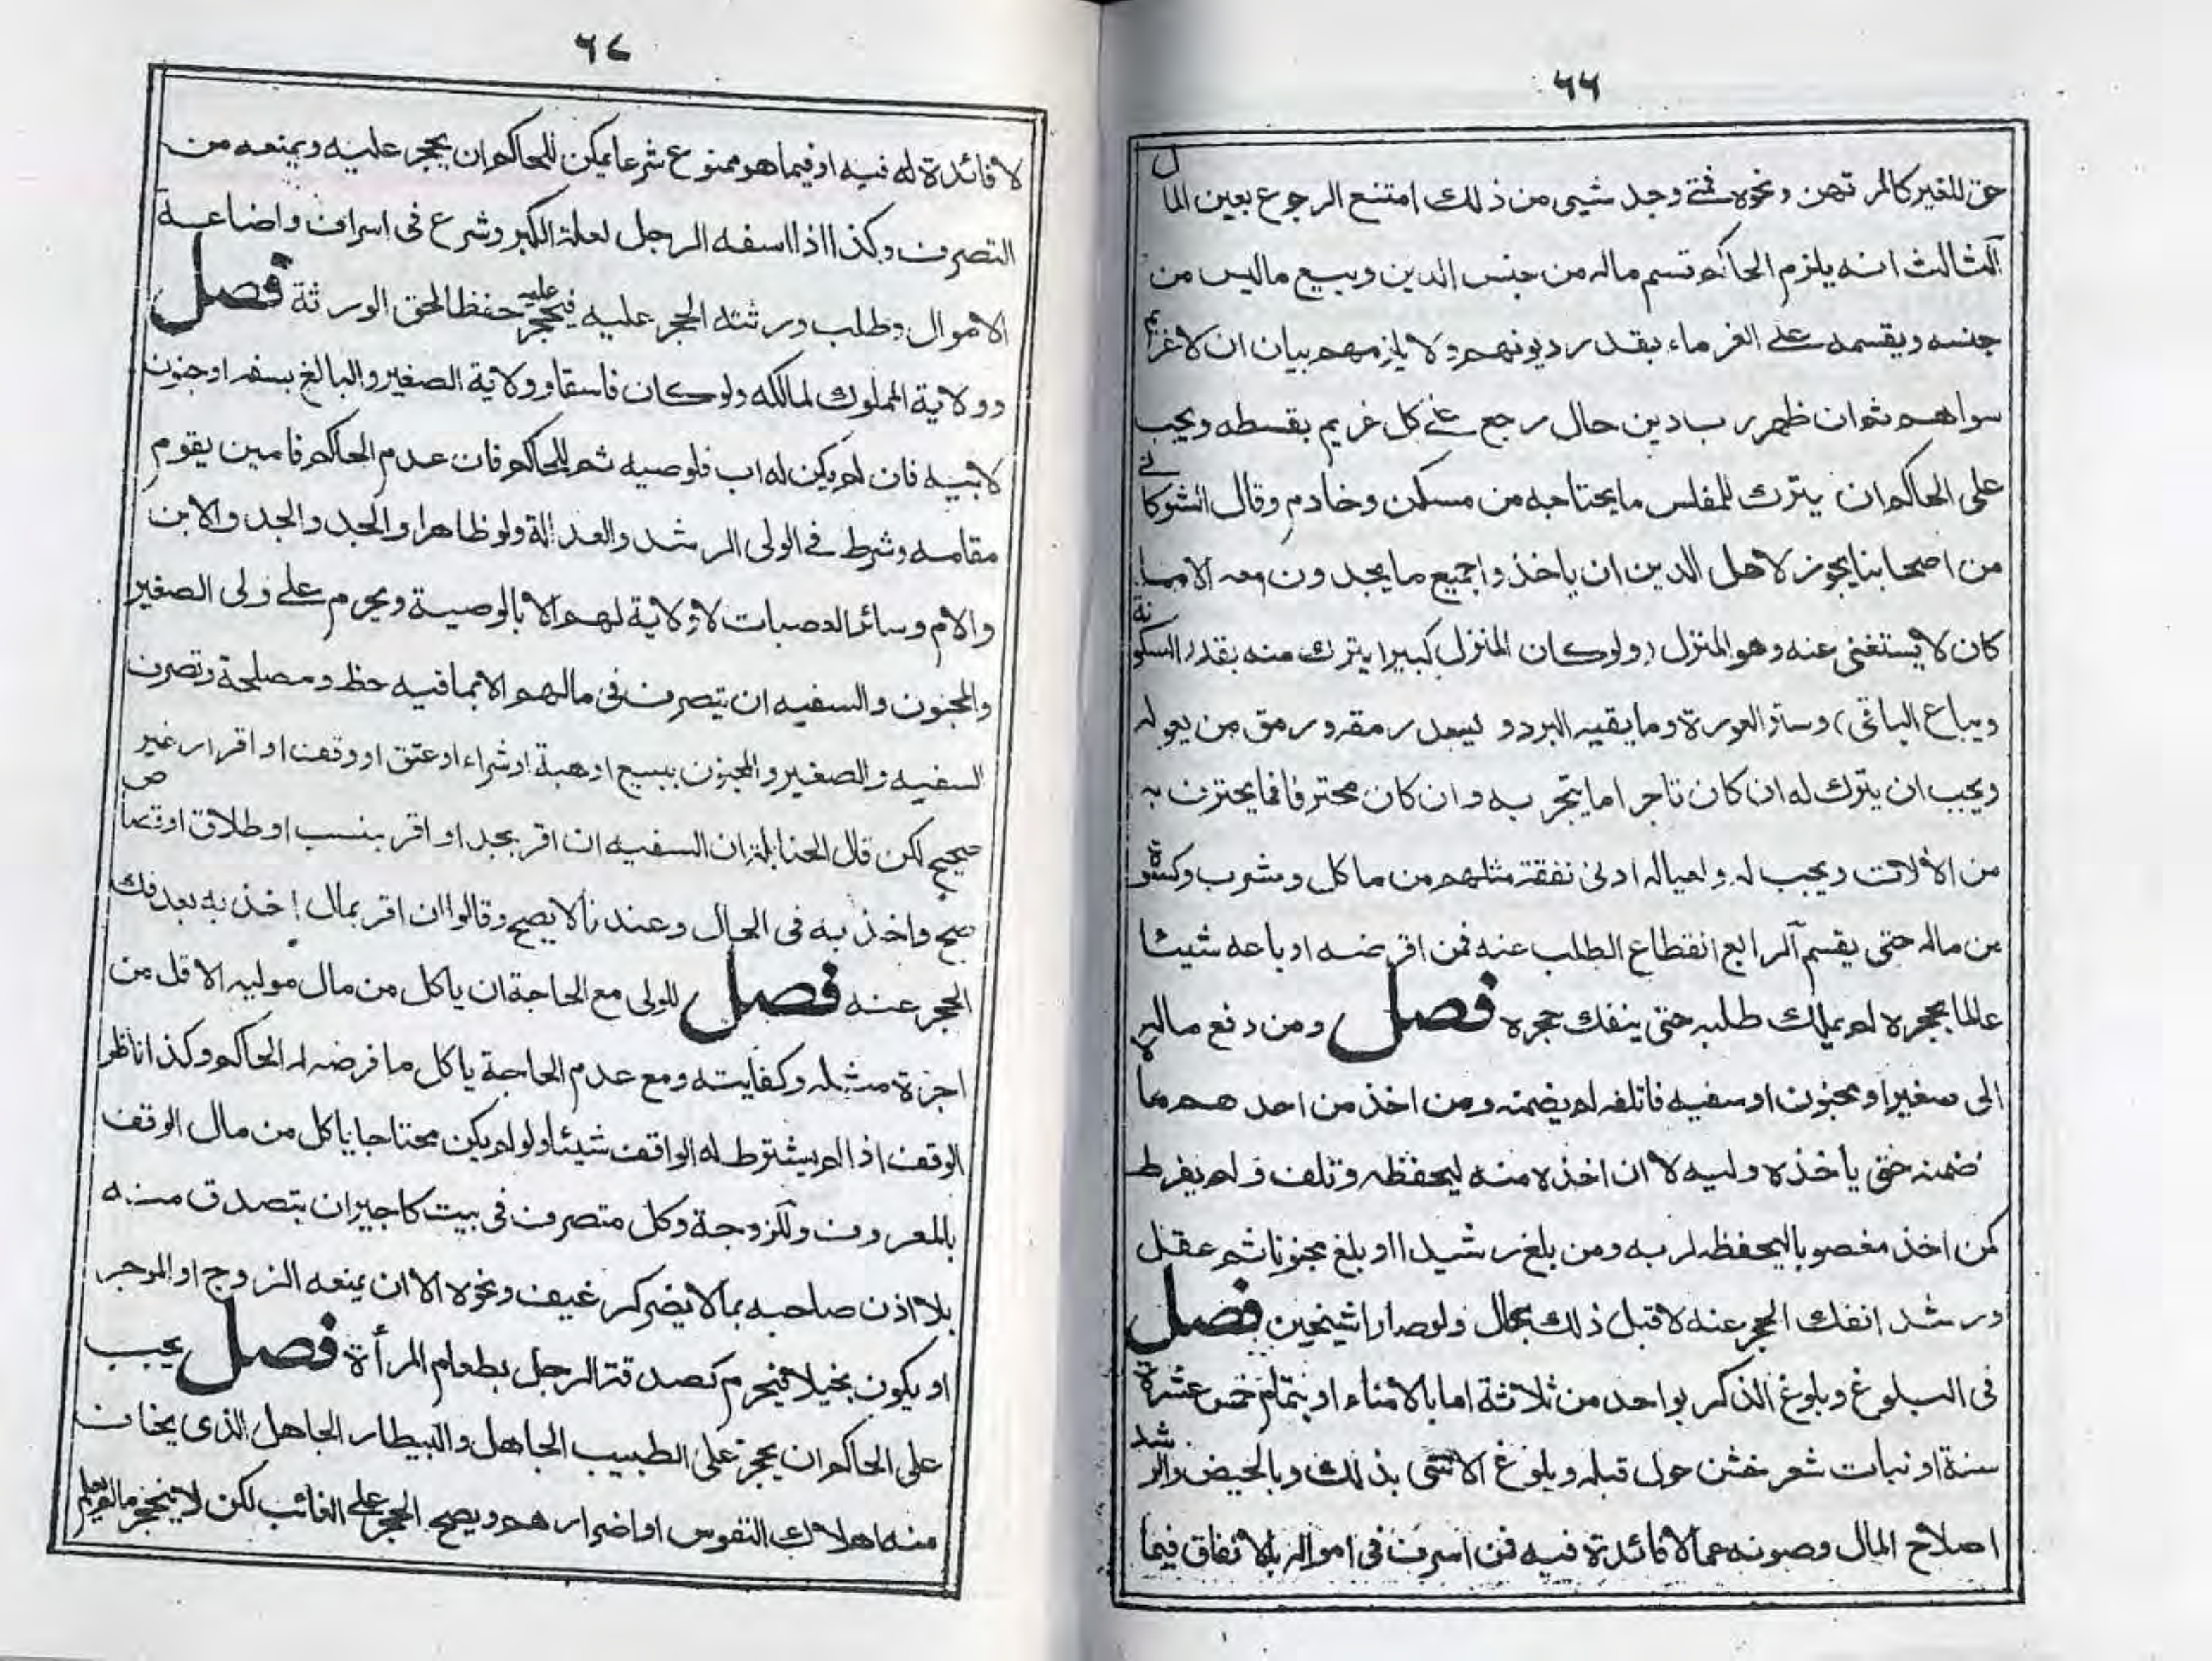 ٦٦
حق للغير كالمرتهن ونحوه فمتى وجد شيئ من ذلك امتنع الرجوع بعين المال
الثالث انه يلزم الحاكم قسم ماله من جنس الدين وبيع ماليس من
جنسه ويقسمه على الغرماء بقدر ديونهم ولا يلزمهم بيان ان لا غريم
سواهم ثم ان ظهر رب دين حال رجع على كل غريم بقسطه ويجب
على الحاكم ان يترك للمفلس ما يحتاجه من مسكن وخادم وقال الشوكانى
من اصحابنا يجوز لاهل الدين ان ياخذوا جميع ما يجدون معه الا ما
كان لا يستغنى عنه وهو المنزل (ولو كان المنزل كبيرا يترك منه بقدر السكونة
ويباع الباقى) وساتر العورة وما يقيه البرد و يسد رمقه ورمق من يعوله
ويجب ان يترك له ان كان تاجرا ما يتجر به وان كان محترفا فما يحترف به
من الألات ويجب له ولعياله ادنى نفقة مثلهم من ماكل ومشرب وكسوة
من ماله حتى يقسم الرابع انقطاع الطلب عنه فمن اقرضه او باعه شيئا
عالما بحجره لم يملك طلبه حتى ينفك حجره فصل ومن دفع ماله
الى صغير او مجنون او سفيه فاتلفه لم يضمنه ومن اخذ من احدهم مالا
ضمنه حتى ياخذه وليه لا ان اخذه منه ليحفظه وتلف ولم يفرط
كمن اخذ مغصوبا ليحفظه لربه ومن بلغ رشيدا او بلغ مجنونا ثم عقل
ورشد انفك الحجر عنه لا قبل ذلك بحال ولو صارا شيخين فصل
فى البلوغ وبلوغ الذكر بواحد من ثلاثة اما بالامناء او بتمام خمس عشرة
سنة او نبات شعر خشن حول قبله وبلوغ الانثى بذلك وبالحيض والرشد
اصلاح المال وصونه عما لا فائدة فيه فمن اسرف فى امواله بالانفاق فيما
٦٧
لا فائدة له فيه او فيما هو ممنوع شرعا يمكن للحاكم ان يحجر عليه ويمنعه من
التصرف وكذا اذا اسفه الرجل لعلة الكبر وشرع فى اسراف واضاعة
الاموال وطلب ورثته الحجر عليه فيحجر عليه حفظا لحق الورثة فصل
وولاية المملوك لمالكه ولو كان فاسقا وولاية الصغير والبالغ بسفه او جنون
لابيه فان لم يكن له اب فلوصيه ثم للحاكم فان عدم الحاكم فامين يقوم
مقامه وشرط فى الولى الرشد والعدالة ولو ظاهرا والجد والجد والابن
والام وسائر العصبات لا ولاية لهم الا بالوصية ويحرم على ولى الصغير
والمجنون والسفيه ان يتصرف فى مالهم الا بما فيه حظ ومصلحة وتصرف
السفيه والصغير والمجنون ببيع او هبة او شراء او عتق او وقف او اقرار غير
صحيح لكن قال الحنابلة ان السفيه ان اقر بحد او اقر بنسب او طلاق او قصاص
صح واخذ به فى الحال وعندنا لا يصح وقالوا ان اقر بمال اخذ به بعد فك
الحجر عنه فصل للولى مع الحاجة ان ياكل من مال موليه الاقل من
اجرة مثله وكفايته ومع عدم الحاجة ياكل ما فرضه له الحاكم وكذا ناظر
الوقف اذا لم يشترط له الواقف شيئا ولو لم يكن محتاجا ياكل من مال الوقف
بالمعروف وللزوجة وكل متصرف فى بيت كاجير ان يتصدق منه
بلا اذن صاحبه بما لا يضر كرغيف ونحوه الا ان يمنعه الزوج او الموجر
او يكون بخيلا فيحرم كصدقة الرجل بطعام المرأة فصل يجب
على الحاكم ان يحجر على الطبيب الجاهل والبيطار الجاهل الذى يخاف
منه اهلاك النفوس او اضرارهم ويصح الحجر على الغائب لكن لا ينحجر مالم يعلم